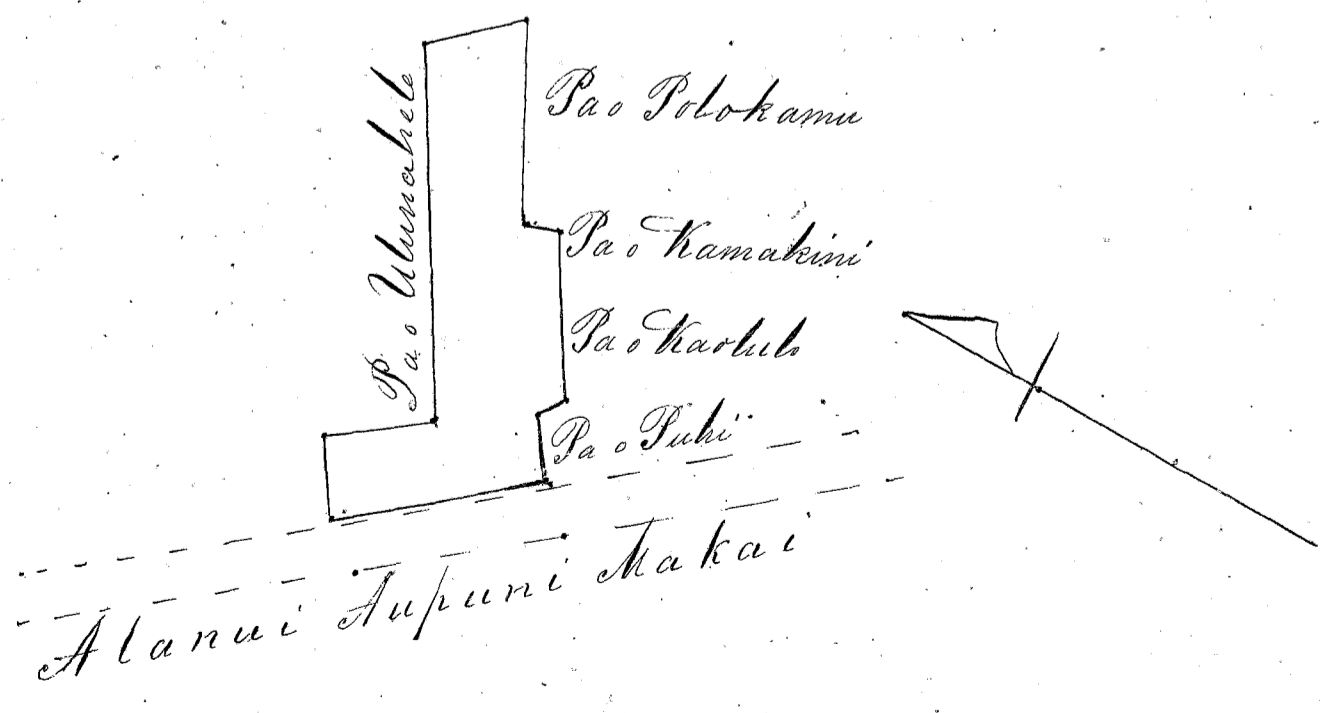 Pa o Ulumahele
Pa o Polokamu
Pa o Kamakini
Pa o Kaolulo
Pa o Puhi
Alanui Aupuni Makai